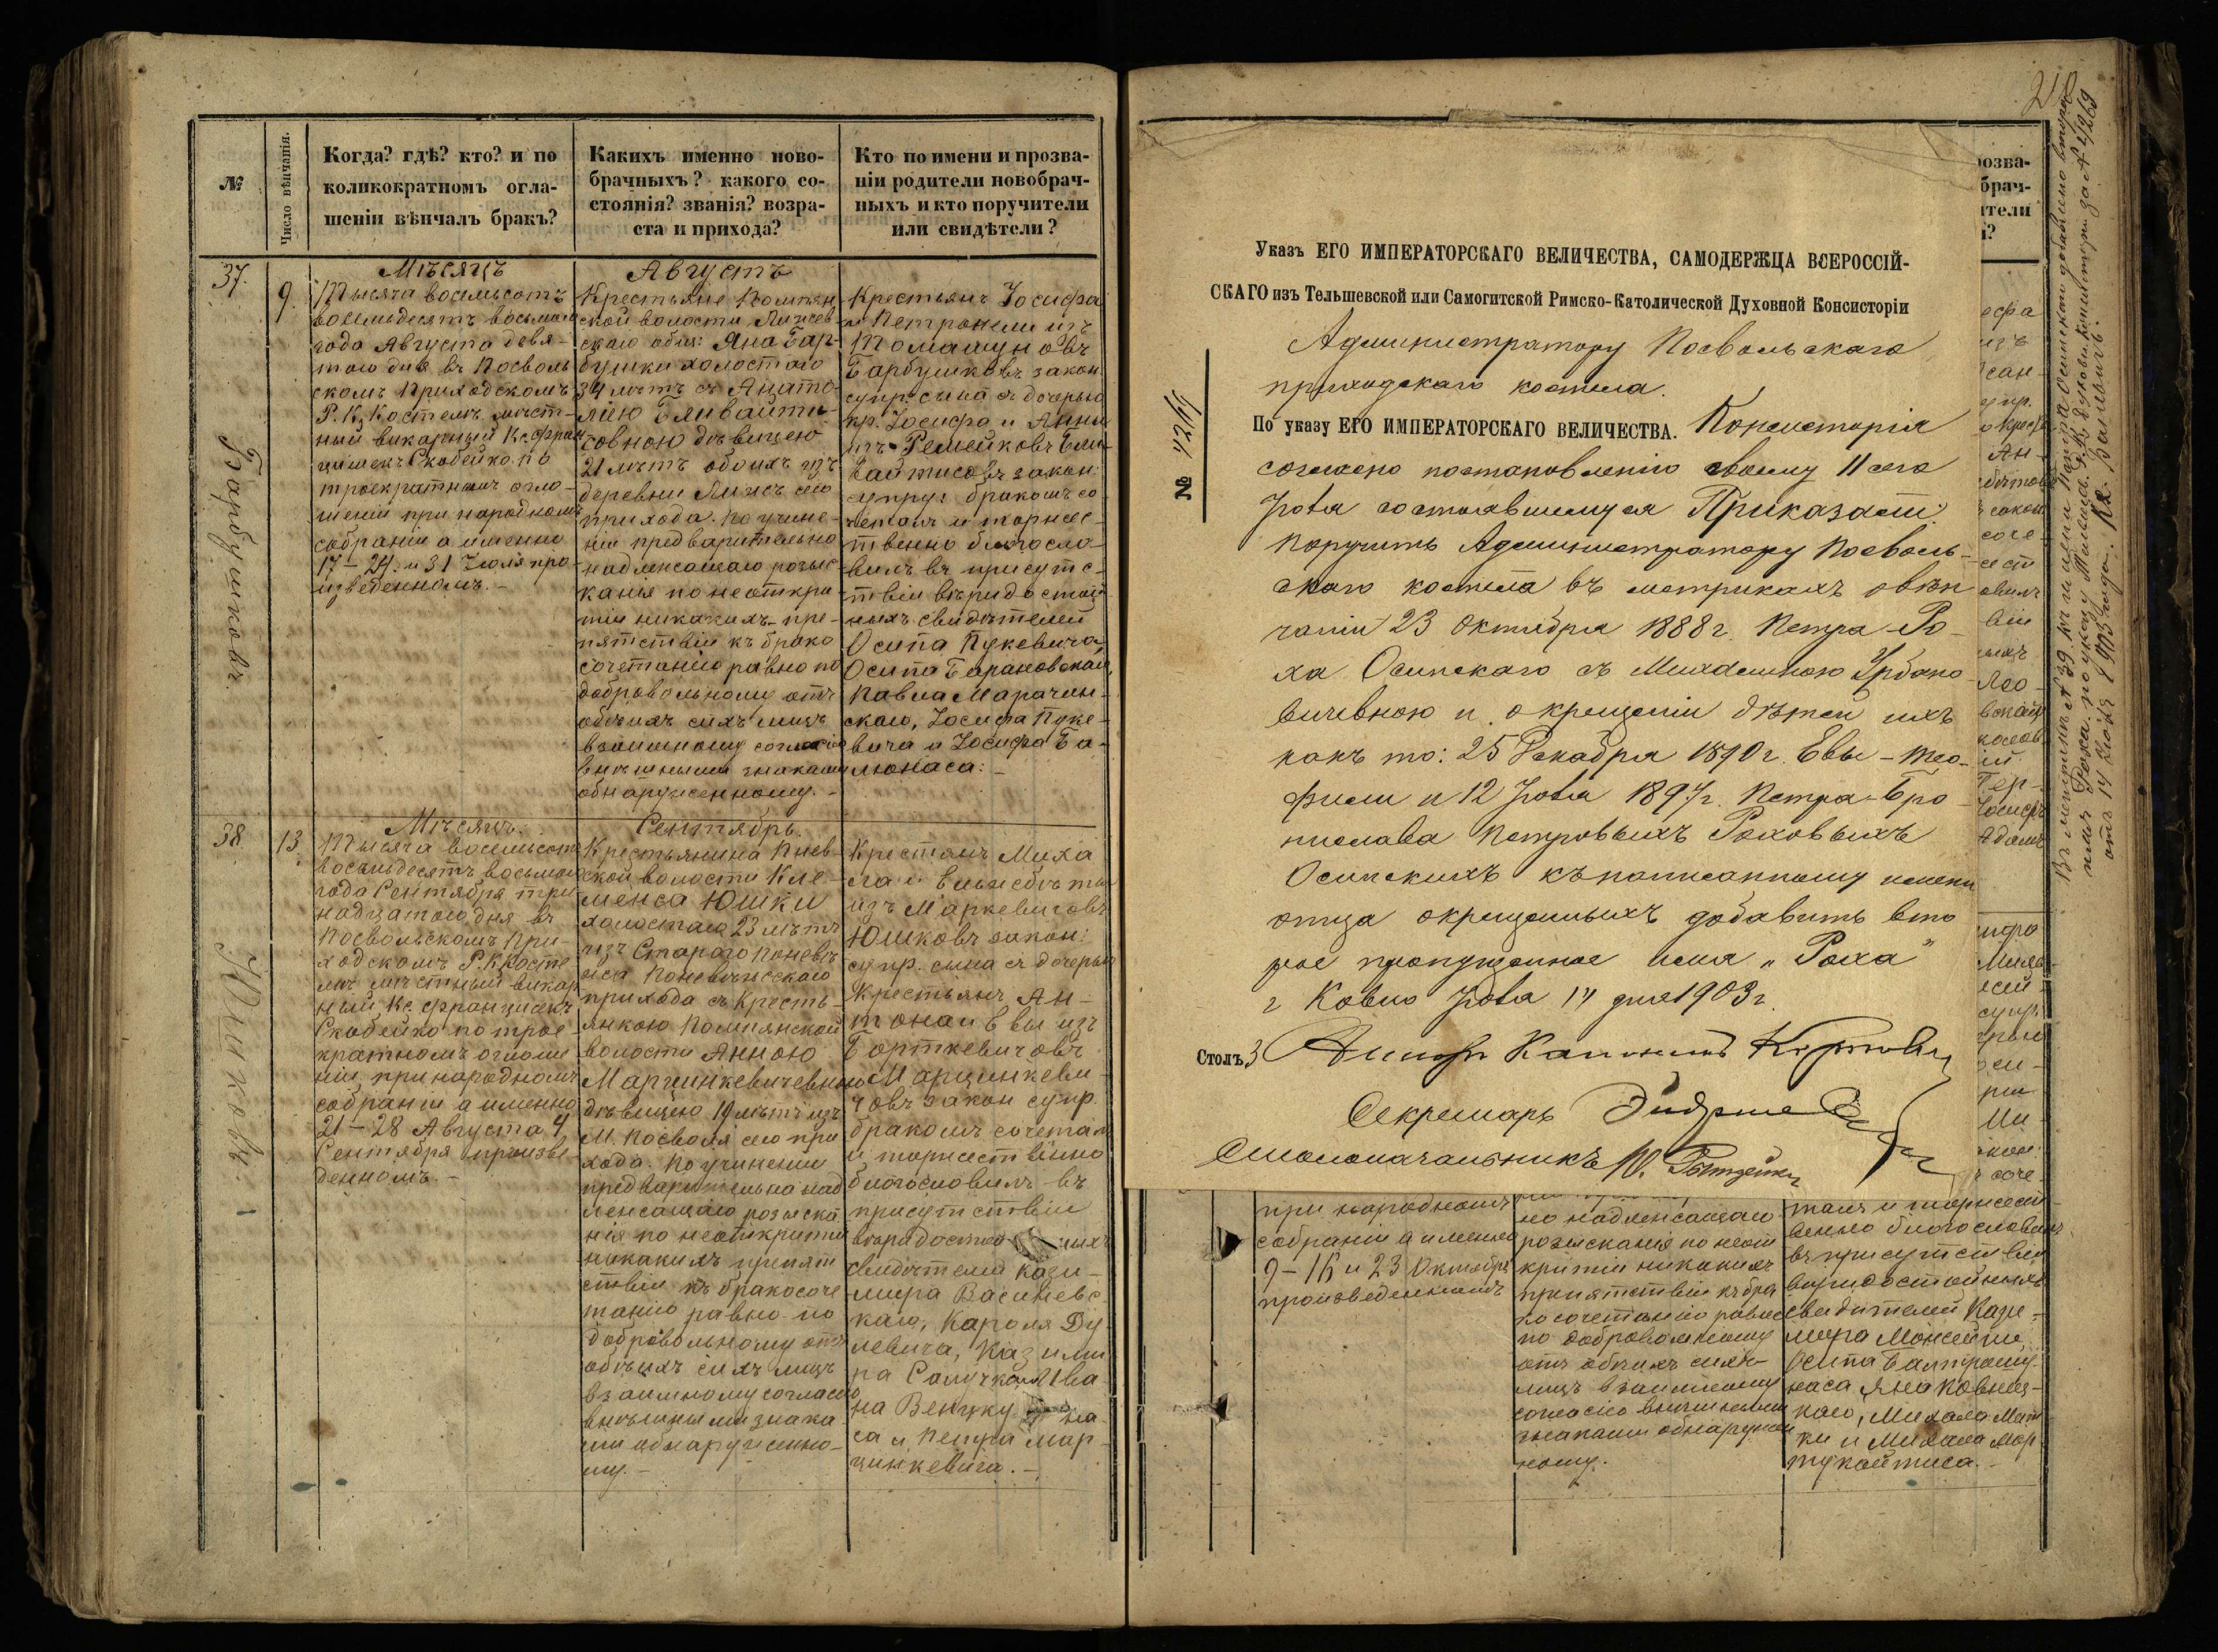 №
Число вѣнчанія.
Когда? гдѣ? кто? и по
коликократномъ огла-
шеніи вѣнчалъ бракъ?
Какихъ именно ново-
брачныхъ? какого со-
стоянія? званія? возра-
ста и прихода?
Кто по имени и прозва-
ніи родители новобрач-
ныхъ и кто поручители
или свидѣтели?
37.
9.
Барбушковъ.
Мѣсяцъ
Тысяча восемьсотъ
восемьдесятъ восьмаго
года Августа девя-
таго дня въ Посволь
скомъ Приходскомъ
Р. К. Костелѣ мѣст-
ный викарный Кс. Фран
цишекъ Скобейко по
троекратномъ огла-
шеніи при народномъ
собраніи а именно
17 – 24. и 31 Іюля про-
изведенномъ. –
Августъ
Крестьяне Помпян
ской волости
скаго общ: Яна Бар-
бушки холостаго
34 лѣтъ съ Анато-
ліею
совною дѣвицею
21 лѣтъ обоихъ изъ
деревни сего
прихода. По учине-
ніи предварительно
надлежащаго розыс-
канія по неоткры-
тіи никакихъ пре-
пятствій къ брако
сочетанію равно по
добровольному отъ
обѣихъ сихъ лицъ
взаимному согласію
внѣшными знаками
обнаруженному. –
Крестьянъ Іосифа
и Петронели изъ
Барбушковъ закон.
супр. сына съ дочерью
кр. Іосифа и Анны
изъ Ремейковъ
закон:
супруг. бракомъ со-
четалъ и торжес-
твенно благосло-
вилъ въ присутс-
твіи вѣридостой
ныхъ свидѣтелей
Осипа Пукевича,
Осипа Барановскаго,
Павла Марачин-
скаго, Іосифа Пуке-
вича и Іосифа Ба-
люнаса: –
38
13
Юшковъ.
Мѣсяцъ.
Тысяча восемьсотъ
восемьдесятъ восьмаго
года Сентября три
надцатаго дня въ
Посвольскомъ При-
ходскомъ Р. К. Косте
лѣ мѣстный викар
ный Кс. Францишекъ
Скобейко по трое
кратномъ оглаше
ніи при народномъ
собраніи а именно
21 – 28 Августа 4
Сентября произве
денномъ. –
Сентябрь.
Крестьянина Пнев-
ской волости Кле-
менса Юшки
холостаго 23 лѣтъ
изъ Стараго Поневѣ
жа Поневѣжскаго
прихода съ Кресть-
янкою Помпянской
волости Анною
Марцинкевичевною
дѣвицею 19 лѣтъ изъ
М. Посволя сего при
хода. По учиненіи
предварительно над
лежащаго розыска
нія по неоткрытіи
никакихъ препят
ствій къ бракосоче
танію равно по
добровольному отъ
обѣихъ сихъ лицъ
взаимному согласію
внѣшными знака
ми обнаруженно-
му. –
Крестьянъ Миха
ла и Ельжбѣты
изъ Маркевичовъ
Юшковъ закон:
супр. сына съ дочерью
Крестьянъ Ан-
тона и Евы изъ
Барткевичовъ
Марцинкеви-
човъ закон супр.
бракомъ сочеталъ
и торжественно
благословилъ въ
присутствіи
свидѣтелей Кази-
мира Васиневс
каго, Кароля Ду
левича, Казими
са и Петра Мар-
цинкевича. –
Указъ ЕГО ИМПЕРАТОРСКАГО ВЕЛИЧЕСТВА, САМОДЕРЖЦА ВСЕРОССІЙ-
СКАГО изъ Тельшевской или Самогитской Римско-Католической Духовной Консисторіи
Администратору Посвольскаго
приходскаго костела.
№
По указу ЕГО ИМПЕРАТОРСКАГО ВЕЛИЧЕСТВА. Консисторія
согласно постановленію своему 11 сего
Іюля состоявшемуся Приказали:
поручить Администратору Посволь-
скаго костела въ метрикахъ о вѣн
чаніи 23 Октября 1888 г. Петра-Ро-
ха Осипскаго съ Михалиною Урбано-
вичевною и о крещеніи дѣтей ихъ
какъ то: 25 Декабря 1890 г. Евы-Тео-
фили и 12 Іюля 1897 г. Петра-Бро-
нислава Петровыхъ Роховыхъ
Осипскихъ къ написанному имени
отца окрещенныхъ добавить вто
рое пропущенное имя „Роха"
г Ковно Іюля 14 дня 1903 г.
Столъ 3
Секретарь
Столоначальникъ
210
Въ метрикѣ № 39 къ имени Петра Осипскаго добавлено второе
имя Роха по указу Тельш. Р. К. Духовн. Консисторіи за № 4269
отъ 14 Іюля 1903 года.
при народномъ
собраніи а именно
9 – 16 и 23 Октября
произведенномъ
но надлежащаго
розысканія по неот
крытіи никакихъ
препятствій къ бра
косочетанію равно
по добровольному
отъ обѣихъ сихъ
лицъ взаимному
согласію внѣшными
знаками обнаружен
ному.
талъ и торжест
венно благословилъ
въ присутствіи
вѣридостойныхъ
свидѣтелей Кази-
мира
Осипа Балтрашу
наса, Яна Ковнац-
каго, Михала Мат
ки и Михала Мар
тукайтиса. –